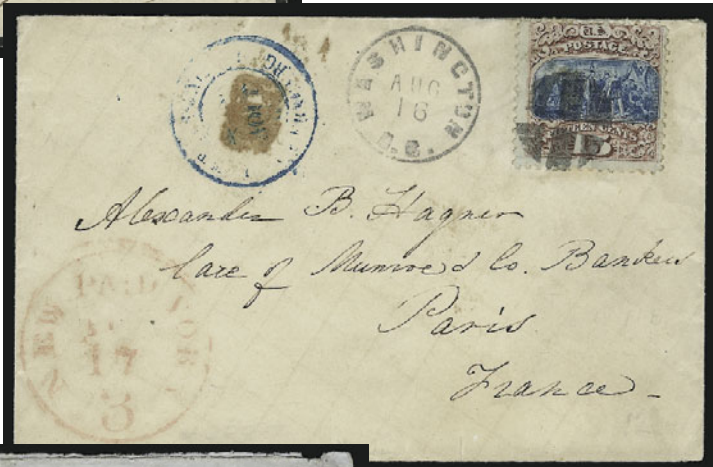 WASHINGTON D.C.
AUG
16
U.S.
POSTAGE
FIFTEEN CENTS
15
Alexander B. Hagner
Care of Munroe & Co. Bankers
Paris
France
NEW YORK
PAID
17
3